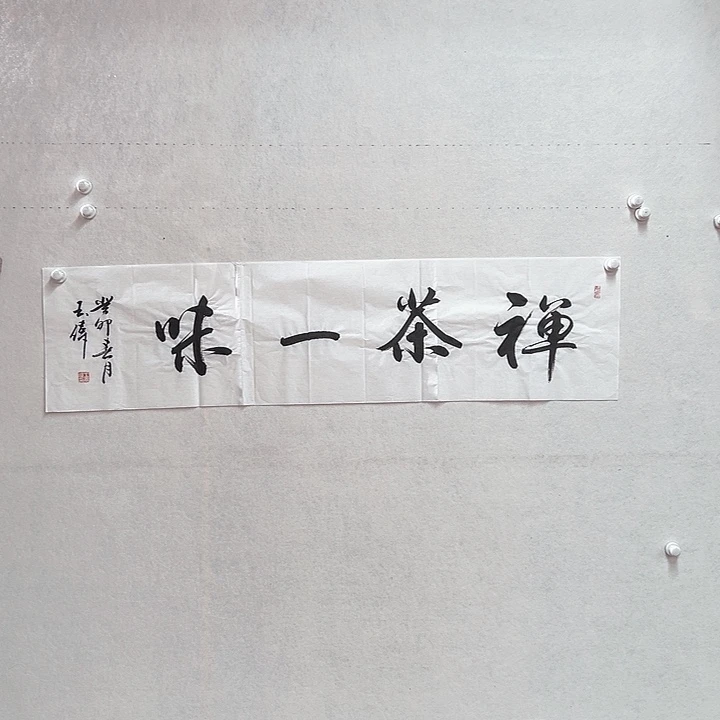 禅茶一味
癸卯春月
玉偉